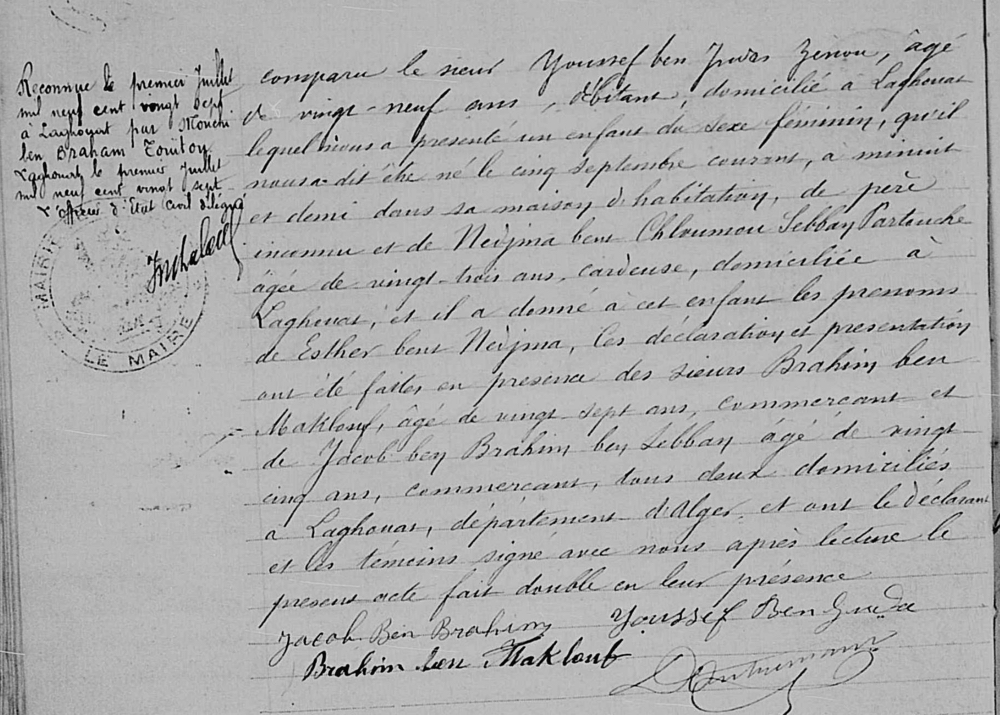 Reconnue le premier Juillet
mil neuf cent vingt sept
à Laghouat par Mouchi
ben Braham Touitou
Laghouat le premier Juillet
mil neuf cent vingt sept
L'officier d'Etat Civil délégué
MAIRIE
LE MAIRE
comparu le sieur Youssef ben Judas Zenou, âgé
de vingt-neuf ans, domicilié à Laghouat
lequel nous a présenté un enfant du sexe féminin, qu'il
nous a dit être né le cinq septembre courant, à minuit
et demi dans sa maison d'habitation, de père
inconnu et de Nedjma bent Chloumou Sebbay Partouche
âgée de vingt-trois ans, cardeuse, domiciliée à
Laghouat, et il a donné à cet enfant les prenoms
de Esther bent Nedjma, Ces déclaration et presentation
ont été faites en presence des sieurs Brahim ben
Maklouf, âgé de vingt sept ans, commercant et
de Jacob ben Brahim ben Sebbay âgé de vingt
cinq ans, commercant, tous deux domiciliés
a Laghouat, département d'Alger, et ont le déclarant
et les témoins signé avec nous après lecture le
present acte fait double en leur présence
Jacob Ben Brahim Youssef Ben
Brahim ben Maklouf